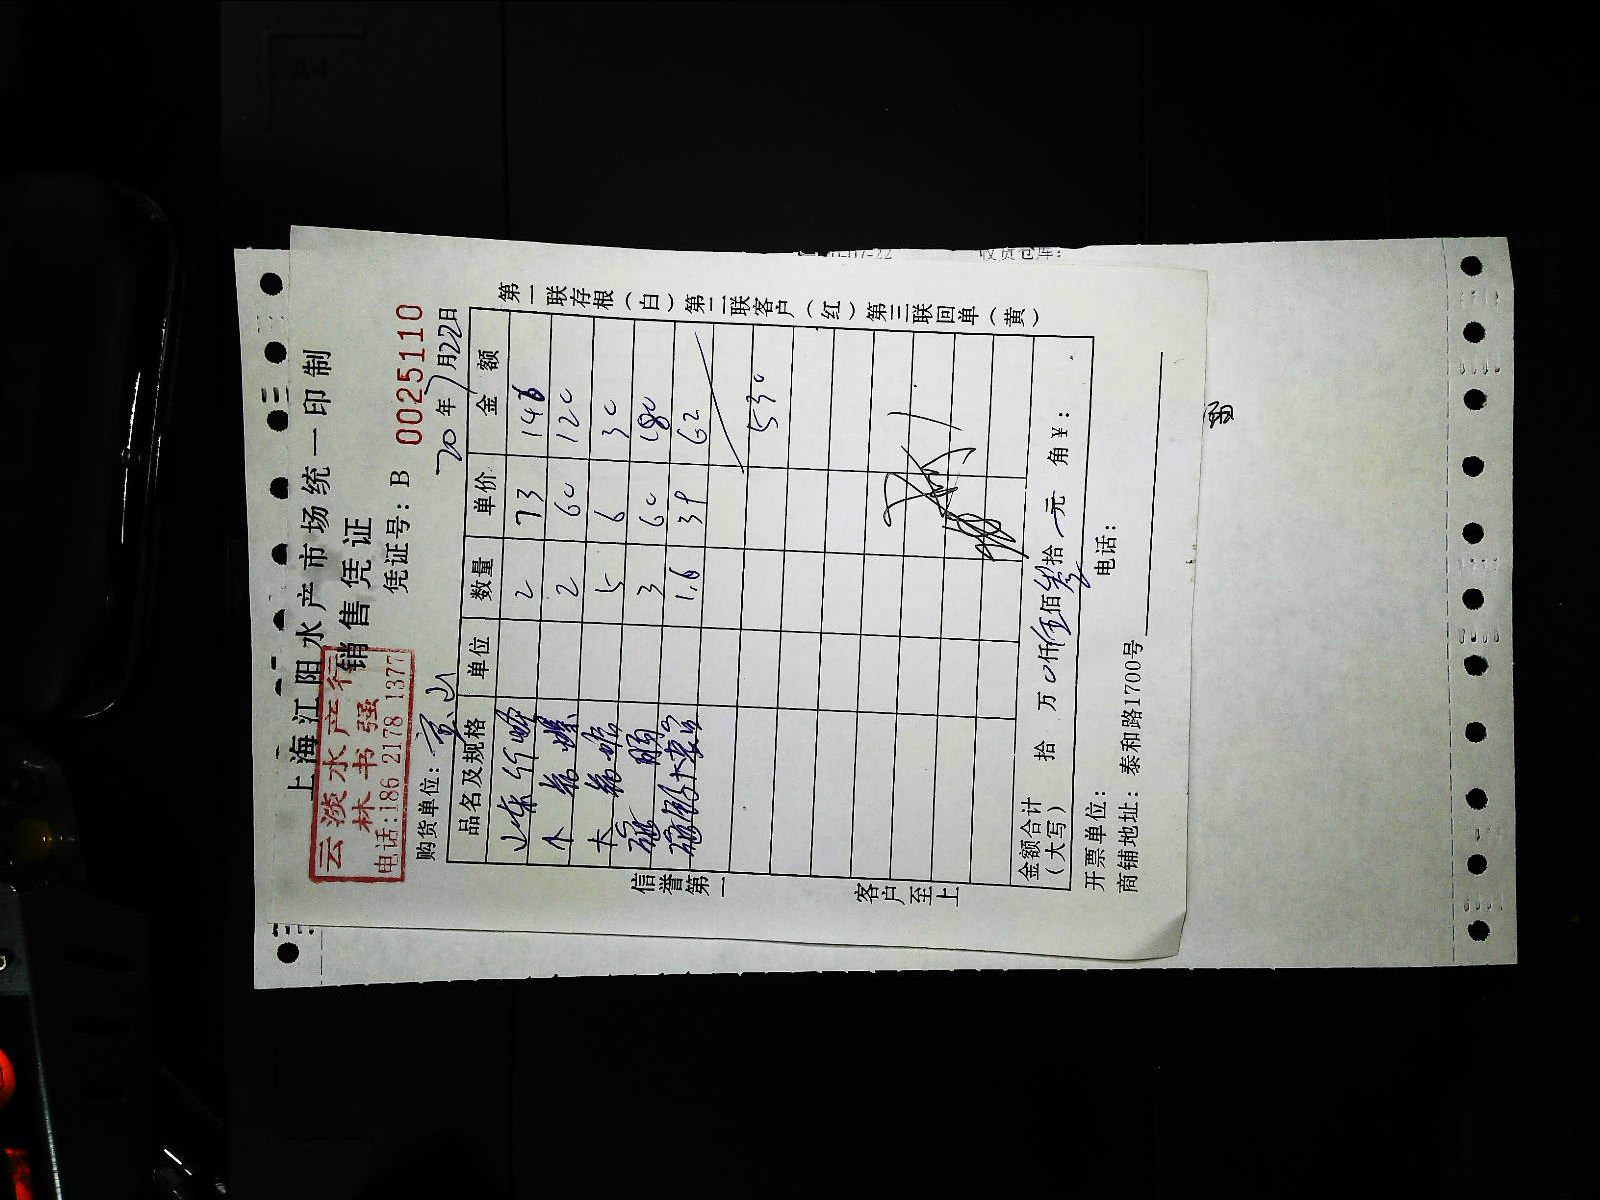 上海江阳水产市场统一印制
销售凭证
云淡水产行
林书强
电话:186 2178 1377
凭证号: B 0025110
购货单位:
20年7月22日
品名及规格 单位 数量 单价 金额
2 73 146
2 60 120
大 5 6 30
3 60 180
1.6 39 62
530
金额合计(大写) 拾 万 0仟伍佰叁拾 元 角 ¥:
开票单位: 电话:
商铺地址: 泰和路1700号
第一联存根(白)第二联客户(红)第三联回单(黄)
信誉第一
客户至上
收货仓库: